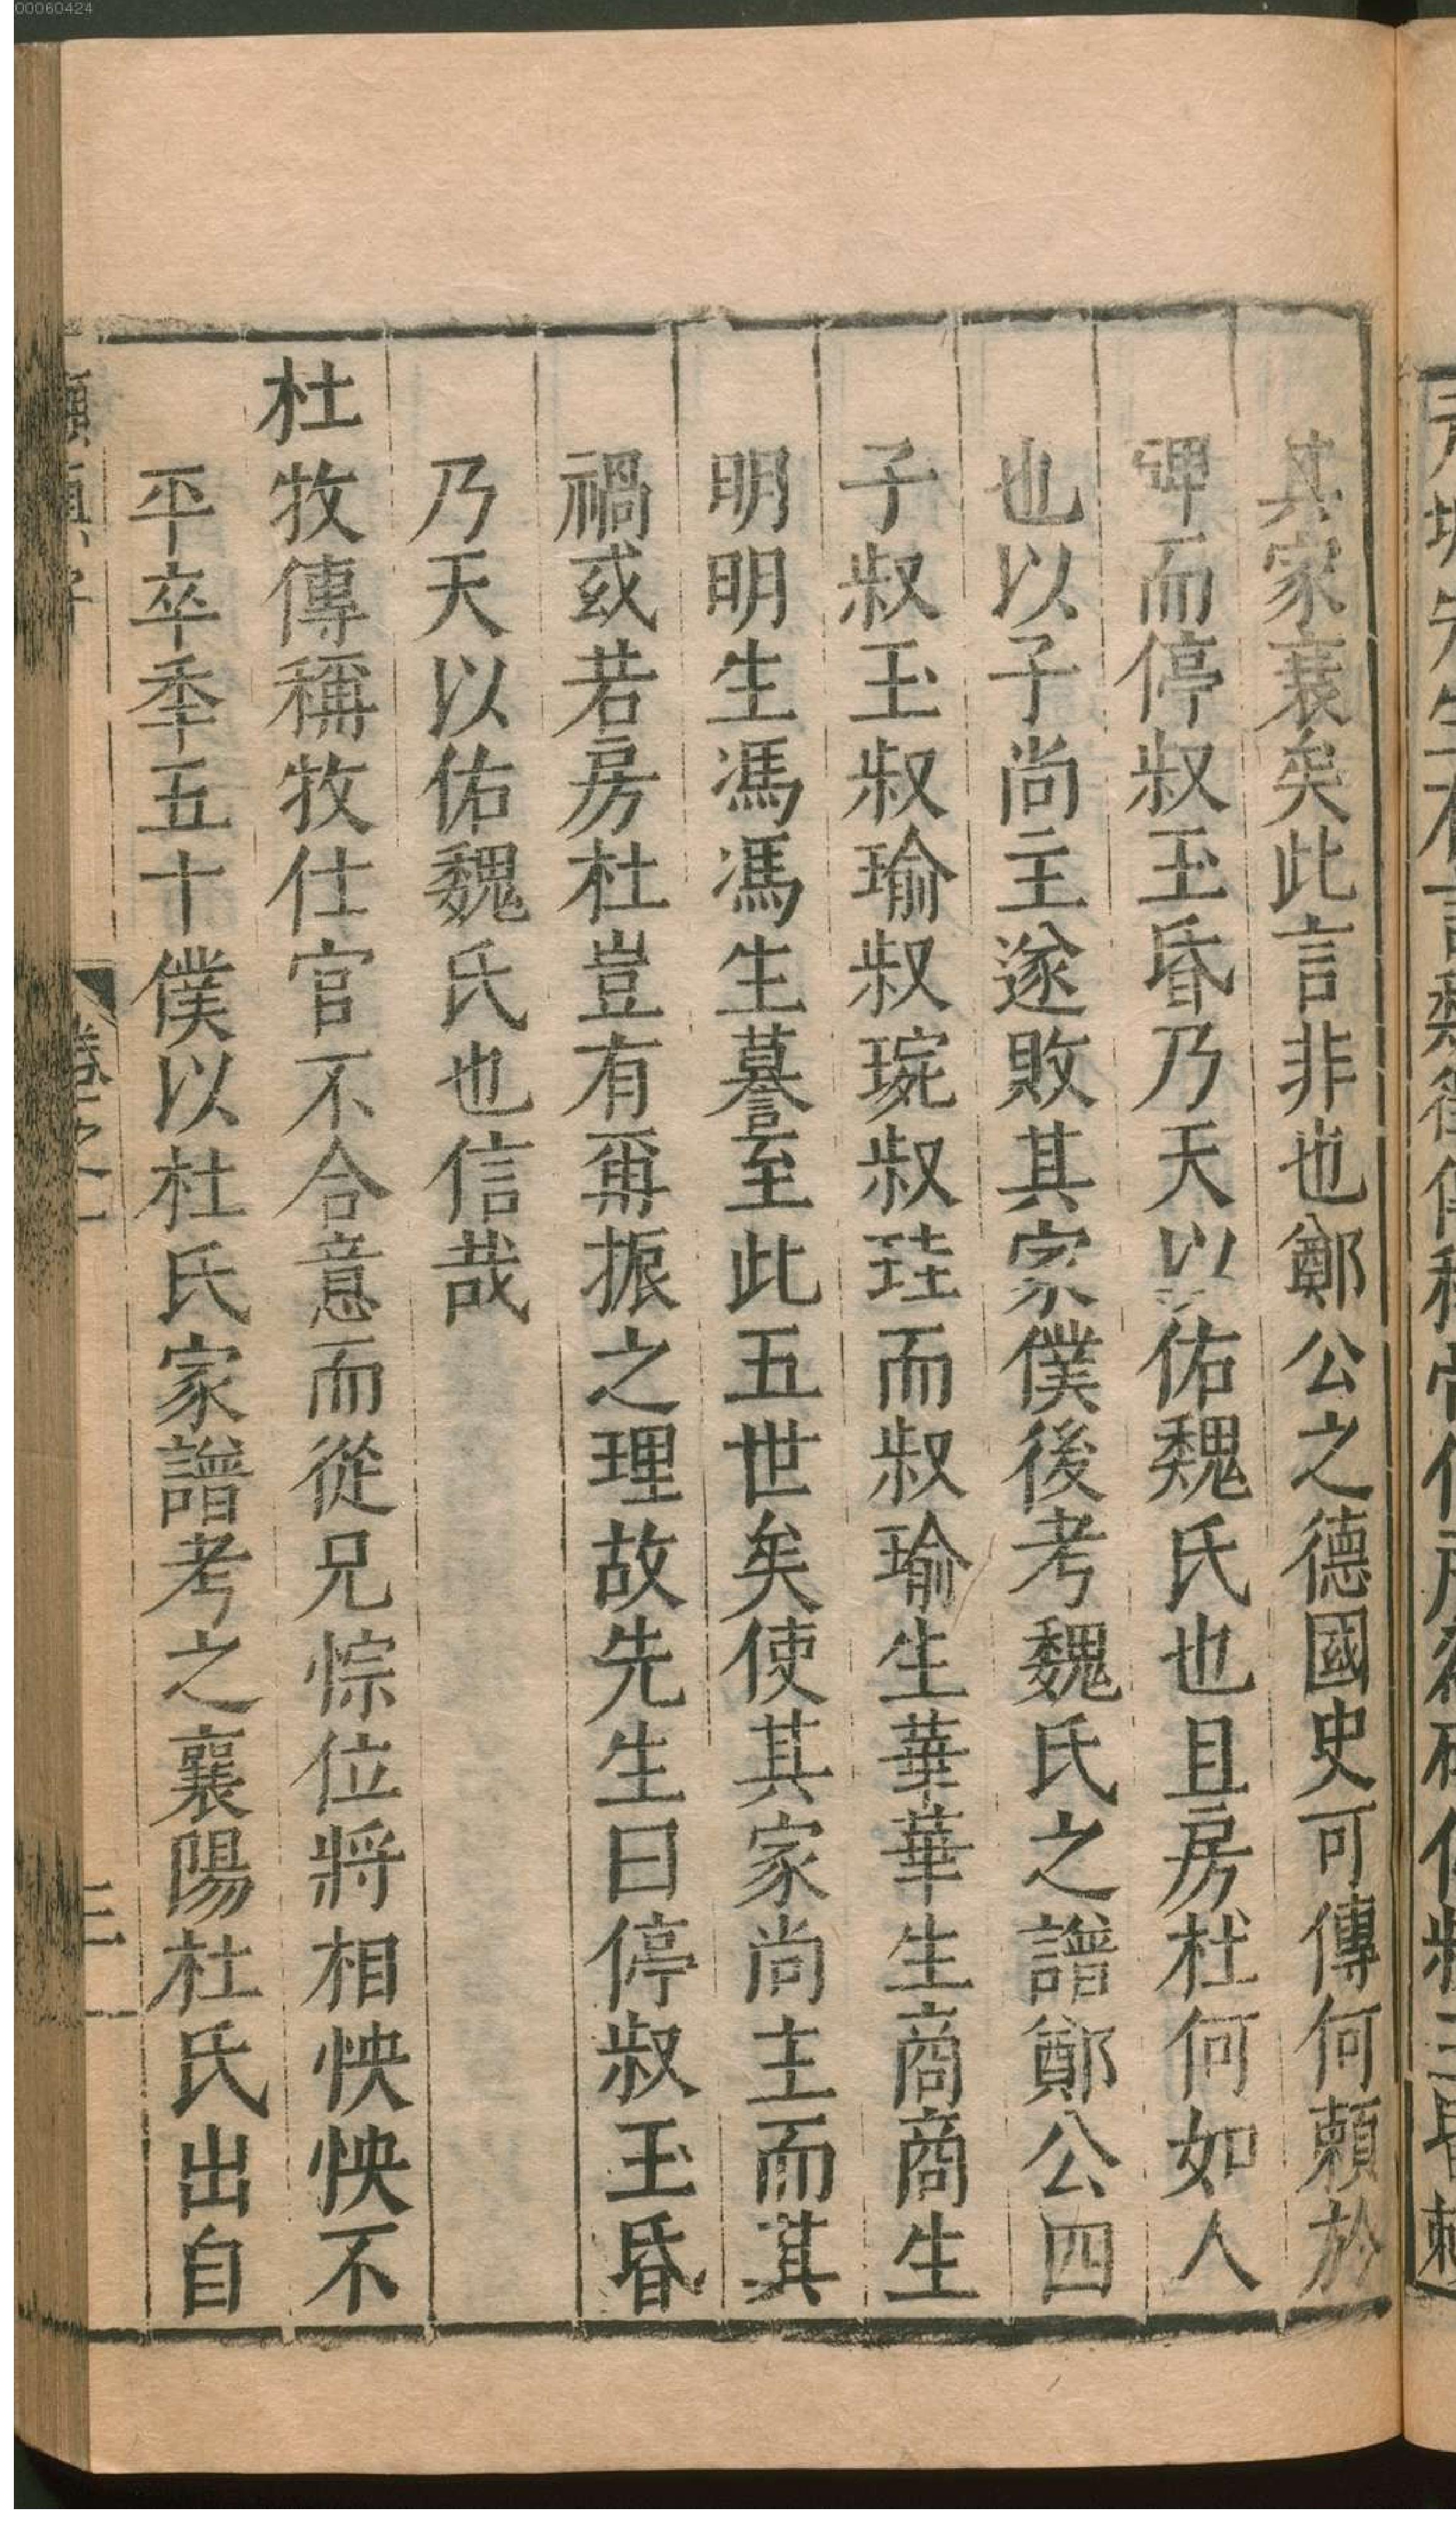 00060424
其家衰矣此言非也鄭公之德國史可傳何賴於
碑而停叔玉昏乃天以佑魏氏也且房杜何如人
也以子尚主遂敗其家僕後考魏氏之譜鄭公四
子叔玉叔瑜叔琬叔珪而叔瑜生華華生商商生
明明生馮馮生謩至此五世矣使其家尚主而其
禍或若房杜豈有再振之理故先生曰停叔玉昏
乃天以佑魏氏也信哉
杜牧傳稱牧仕官不合意而從兄悰位將相怏怏不
平卒年五十僕以杜氏家譜考之襄陽杜氏出自
卷之上
三